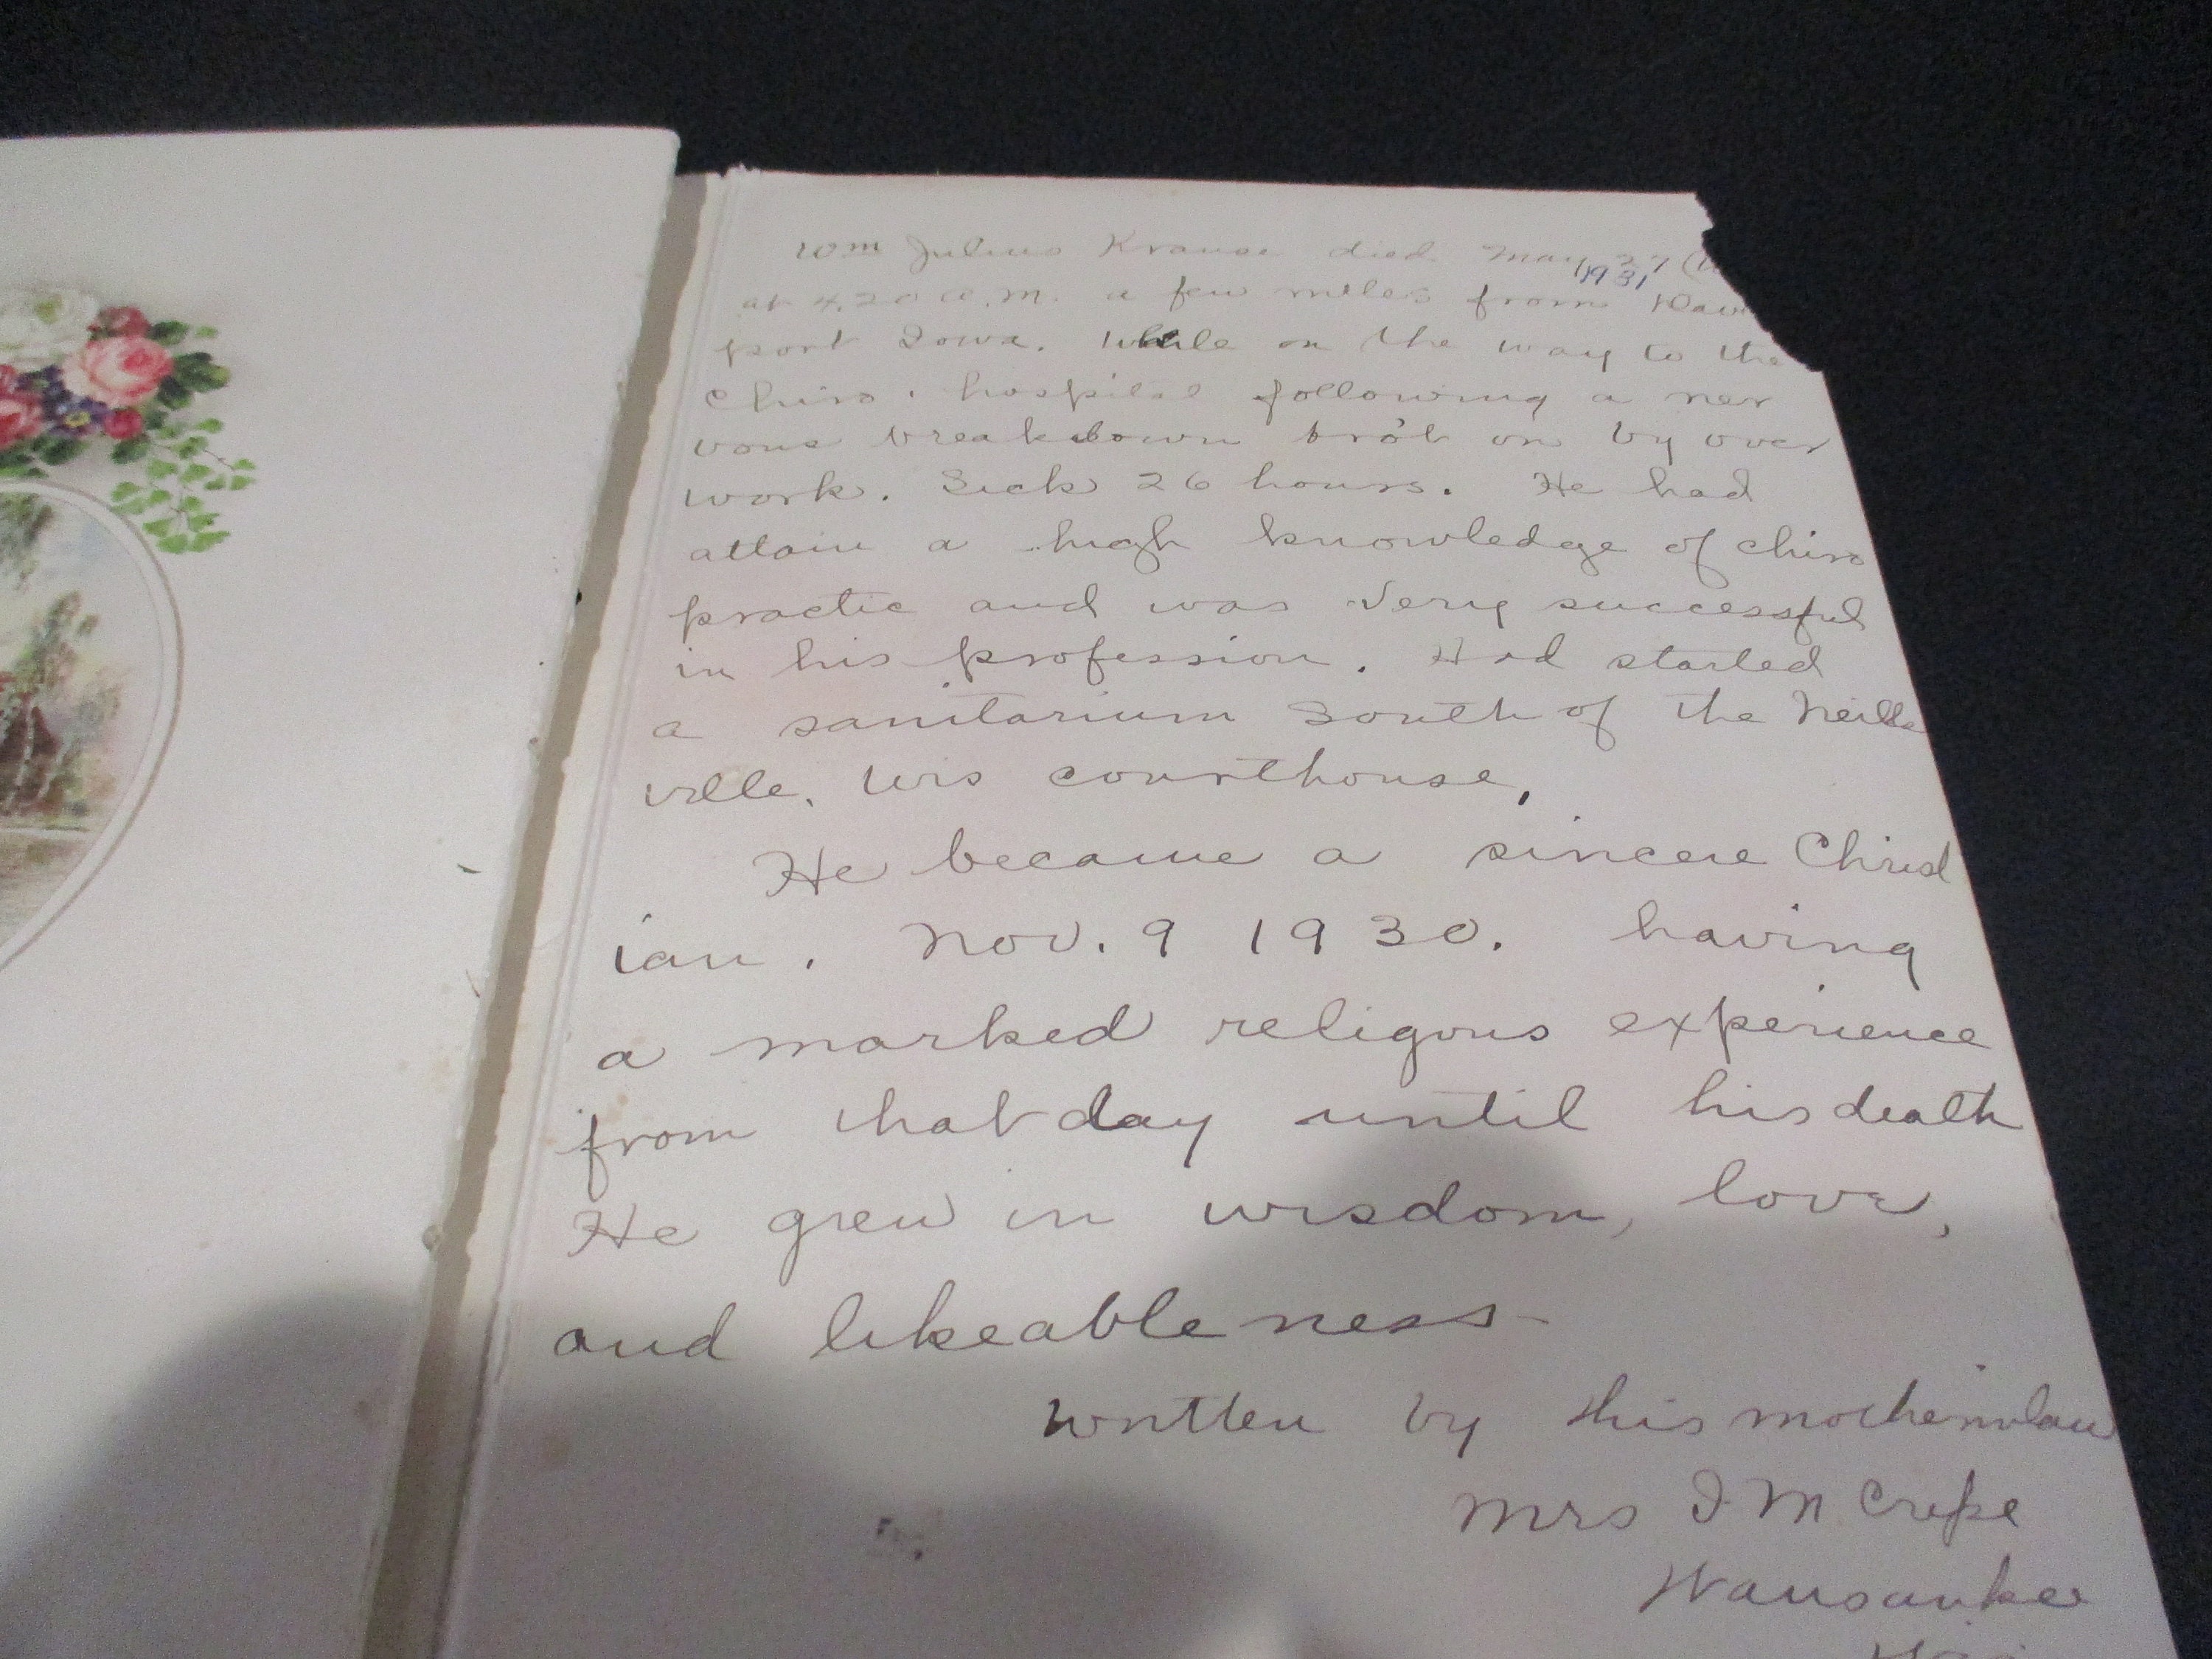 Wm Julius Krause died May 27 (
1931
at 4.20 a.m. a few miles from Dav
port Iowa. While on the way to the
Chiro. hospital following a ner
vous breakdown bro't on by over
work. Sick 26 hours. He had
attain a high knowledge of chiro
practic and was very successful
in his profession. Had started
a sanitarium South of the Neills
ville, Wis courthouse,
He became a sincere Christ
ian. Nov. 9 1930. having
a marked religous experience
from that day until his death
He grew in wisdom, love,
and likeableness-
written by this motherinlaw
Mrs I M Cripe
Wausaukee
Wis